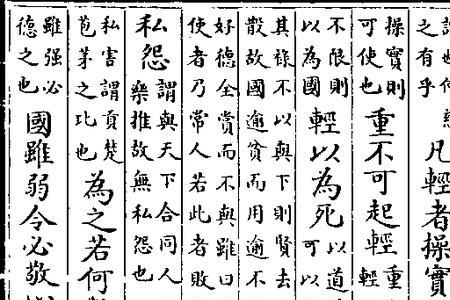 之有乎
凡輕者操實
操實則
可使也
重不可起輕
重
輕
不限則
以為國
輕以為死
以道
可以
其祿不以與下則賢去
散故國逾貧而用逾不
好德全賞而不與雖曰
使者乃常人若此者敗
私怨
謂與天下合同人
樂推故無私怨也
私害謂貢楚
苞茅之比也
為之若何
雖强必
德之也
國雖弱令必敬